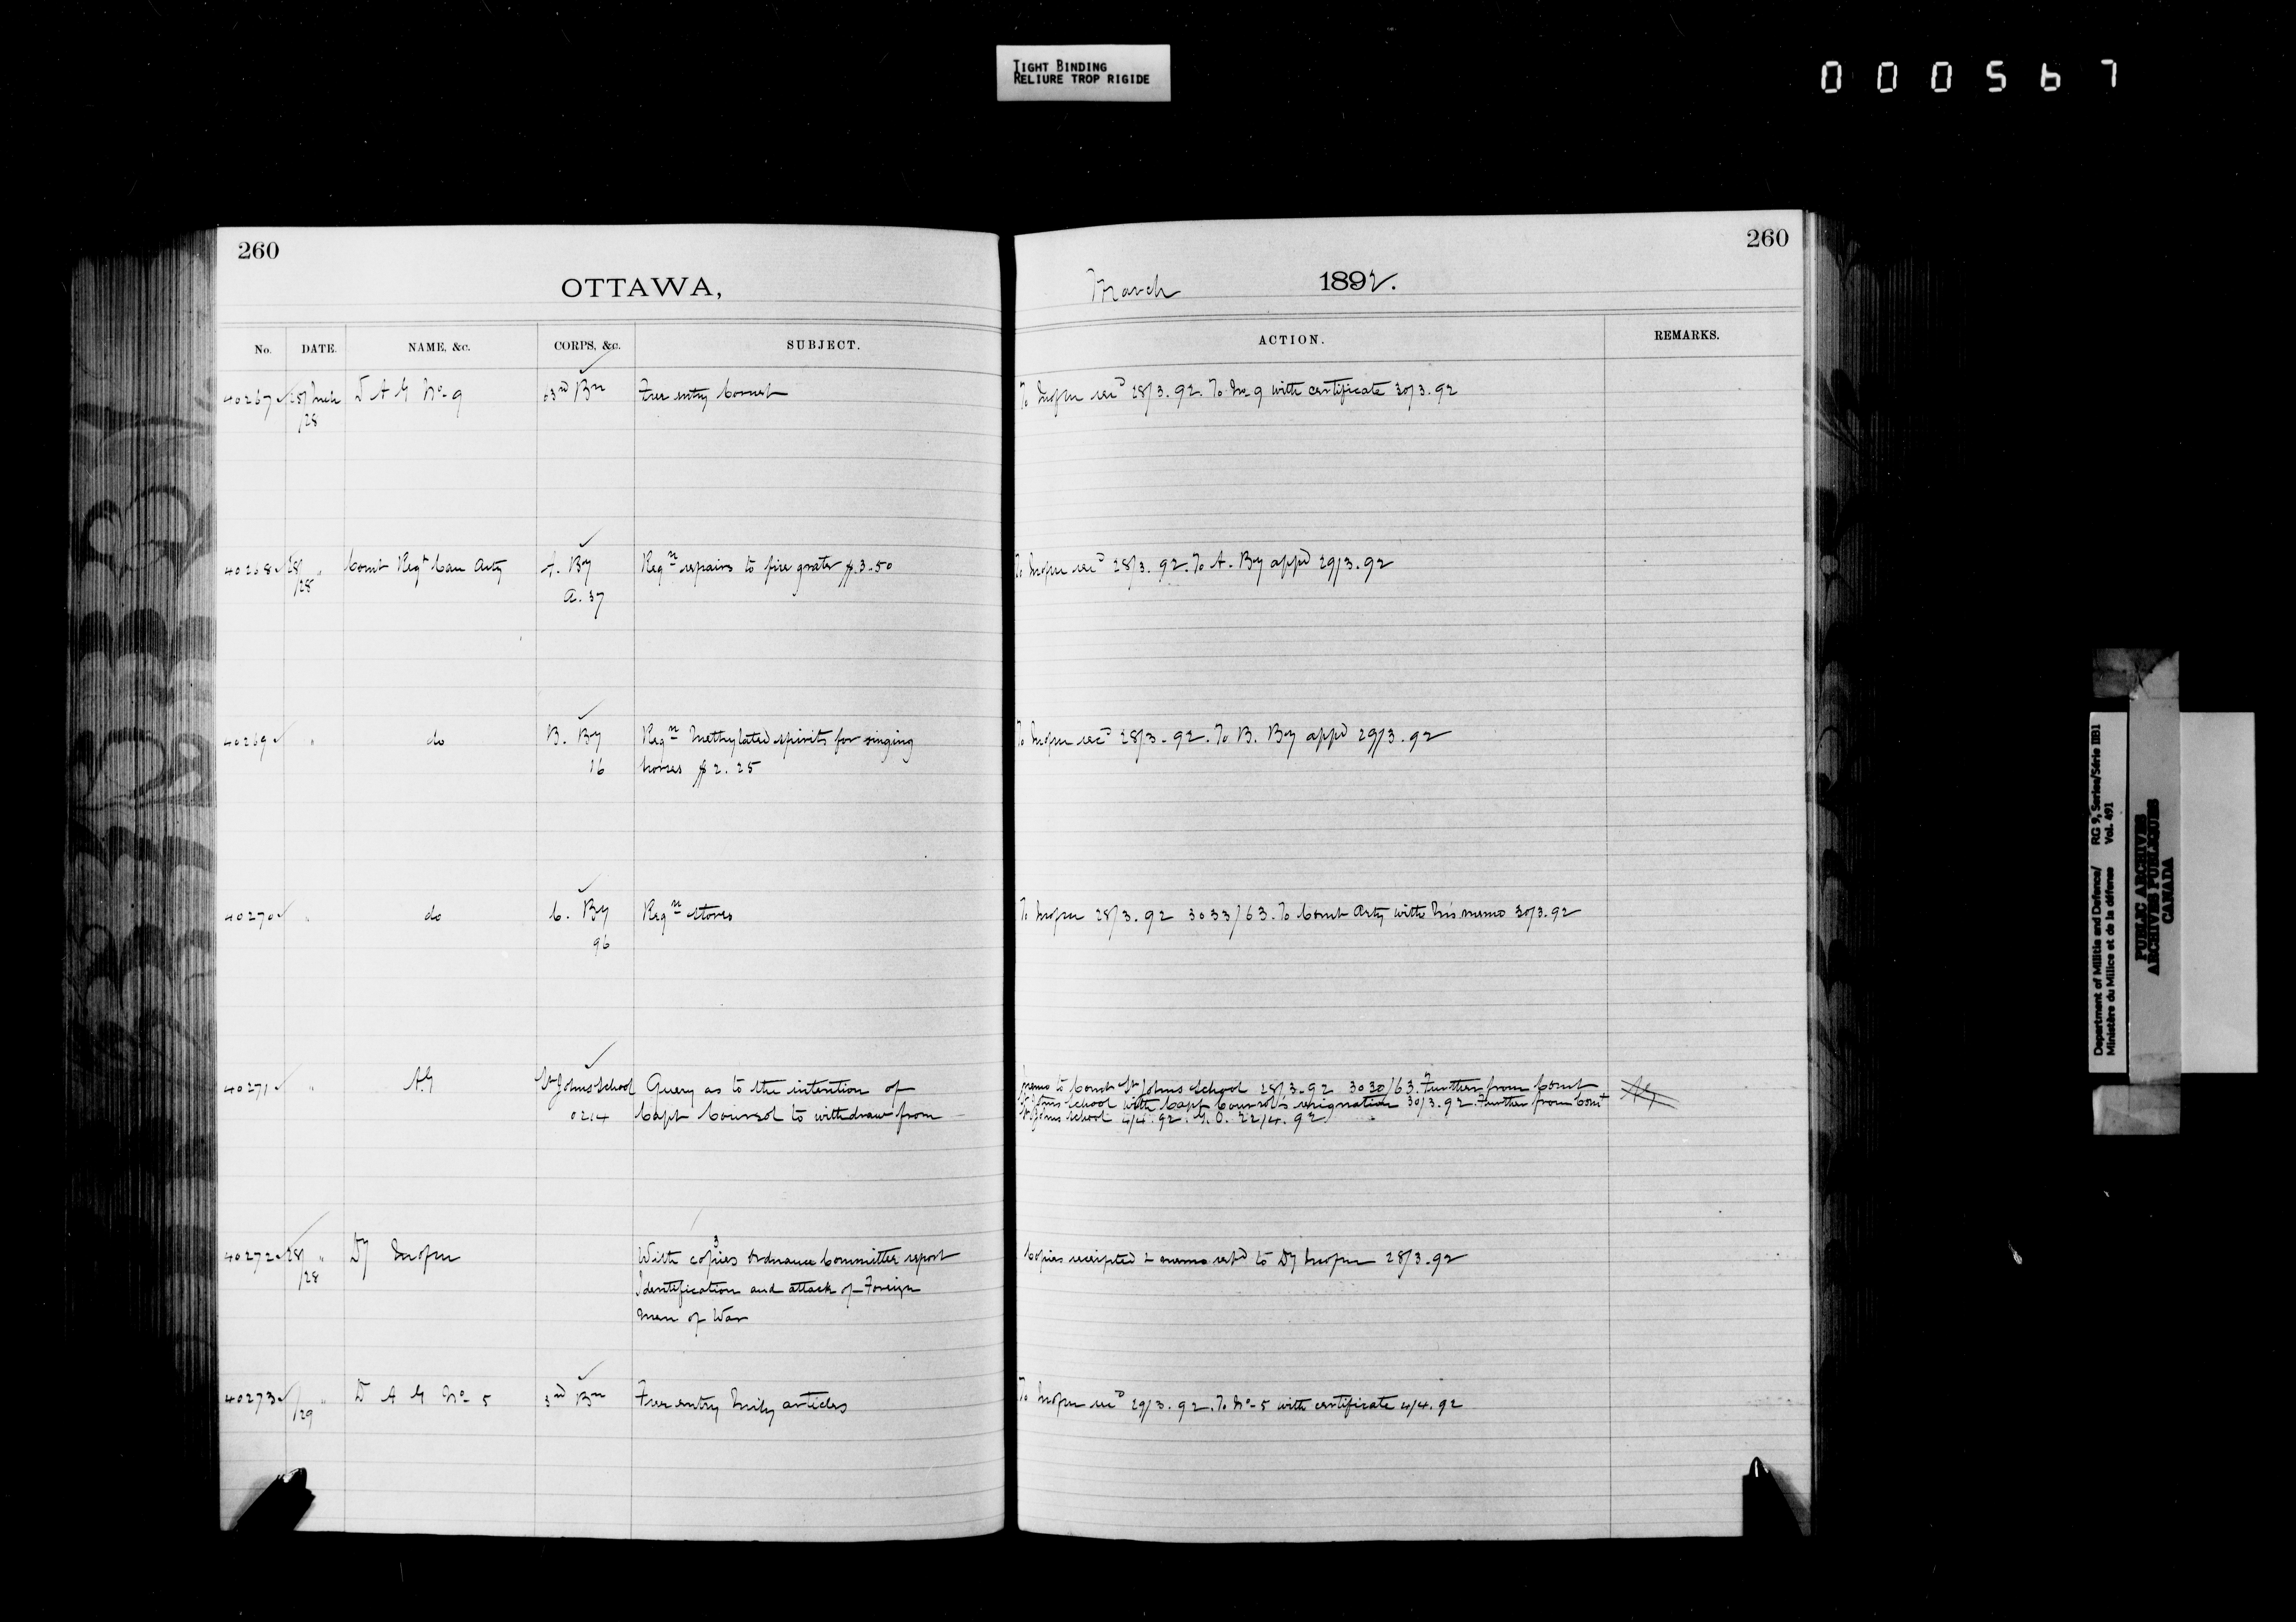 TIGHT BINDING
RELIURE TROP RIGIDE
000567
260
OTTAWA,
No. DATE. NAME, &c. CORPS, &c. SUBJECT.
40267 28 Mch D A G No 9 63rd Bn Free entry Cornet
/28
40268 28 " Comt Regt Can Arty A. By Reqn repairs to fire grates $3.50
/28 A. 37
40269 " do B. By Reqn Methylated spirits for singing
16 horses $2.25
40270 " do C. By Reqn stores
96
40271 " AG St Johns School Query as to the intention of
0214 Capt Coursol to withdraw from
40272 28 " Dy 3
With copies Ordnance Committee report
/28 Identification and attack of Foreign
Men of War
40273 " D A G No 5 3rd Bn Free entry articles
/29
260
March 1892.
ACTION. REMARKS.
To 28/3.92. To No 9 with certificate 30/3.92
To 28/3.92. To A. By appd 29/3.92
To 28/3.92. To B. By appd 29/3.92
To 28/3.92 3033/63. To Comt Arty with memo 30/3.92
Memo to Comt St Johns School 28/3.92 3030/63. Further from Comt
St Johns School with Capt Coursol's resignation 30/3.92. Further from Comt
St Johns School 4/4.92. G.O. 22/4.92
Copies receipted & memo retd to Dy 28/3.92
To 29/3.92. To No 5 with certificate 4/4.92
Department of Militia and Defence/ RG 9, Series/Série IIB1
Ministère du Milice et de la défense Vol. 491
PUBLIC ARCHIVES
ARCHIVES PUBLIQUES
CANADA